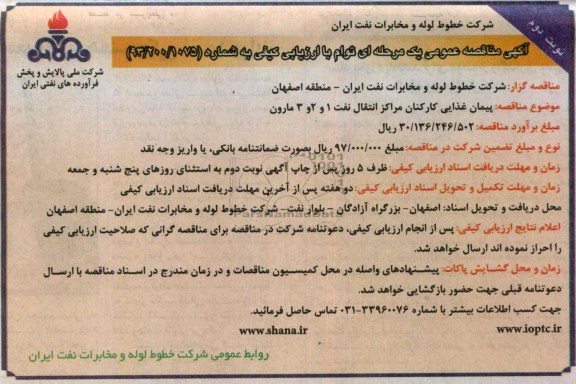 شرکت خطوط لوله و مخابرات نفت ایران
نوبت دوم
شرکت ملی پالایش و پخش
فرآورده های نفتی ایران
آگهی مناقصه عمومی یک مرحله ای توام با ارزیابی کیفی به شماره (۹۳/۲۰۰/۱۰۷۵)
مناقصه گزار: شرکت خطوط لوله و مخابرات نفت ایران – منطقه اصفهان
موضوع مناقصه: پیمان غذایی کارکنان مراکز انتقال نفت ۱ و ۲ و ۳ مارون
مبلغ برآورد مناقصه: ۳۰/۱۳۶/۲۴۶/۵۰۲ ریال
نوع و مبلغ تضمین شرکت در مناقصه: مبلغ ۹۷/۰۰۰/۰۰۰ ریال بصورت ضمانتنامه بانکی، یا واریز وجه نقد
زمان و مهلت دریافت اسناد ارزیابی کیفی: ظرف ۵ روز پس از چاپ آگهی نوبت دوم به استثنای روزهای پنج شنبه و جمعه
زمان و مهلت تکمیل و تحویل اسناد ارزیابی کیفی: دو هفته پس از آخرین مهلت دریافت اسناد ارزیابی کیفی
محل دریافت و تحویل اسناد: اصفهان- بزرگراه آزادگان – بلوار نفت- شرکت خطوط لوله و مخابرات نفت ایران- منطقه اصفهان
اعلام نتایج ارزیابی کیفی: پس از انجام ارزیابی کیفی، دعوتنامه شرکت در مناقصه برای مناقصه گرانی که صلاحیت ارزیابی کیفی
را احراز نموده اند ارسال خواهد شد.
زمان و محل گشایش پاکات: پیشنهادهای واصله در محل کمیسیون مناقصات و در زمان مندرج در اسناد مناقصه با ارسال
دعوتنامه قبلی جهت حضور بازگشایی خواهد شد.
جهت کسب اطلاعات بیشتر با شماره ۳۳۹۶۰۰۷۶-۰۳۱ تماس حاصل فرمائید.
www.shana.ir www.ioptc.ir
روابط عمومی شرکت خطوط لوله و مخابرات نفت ایران